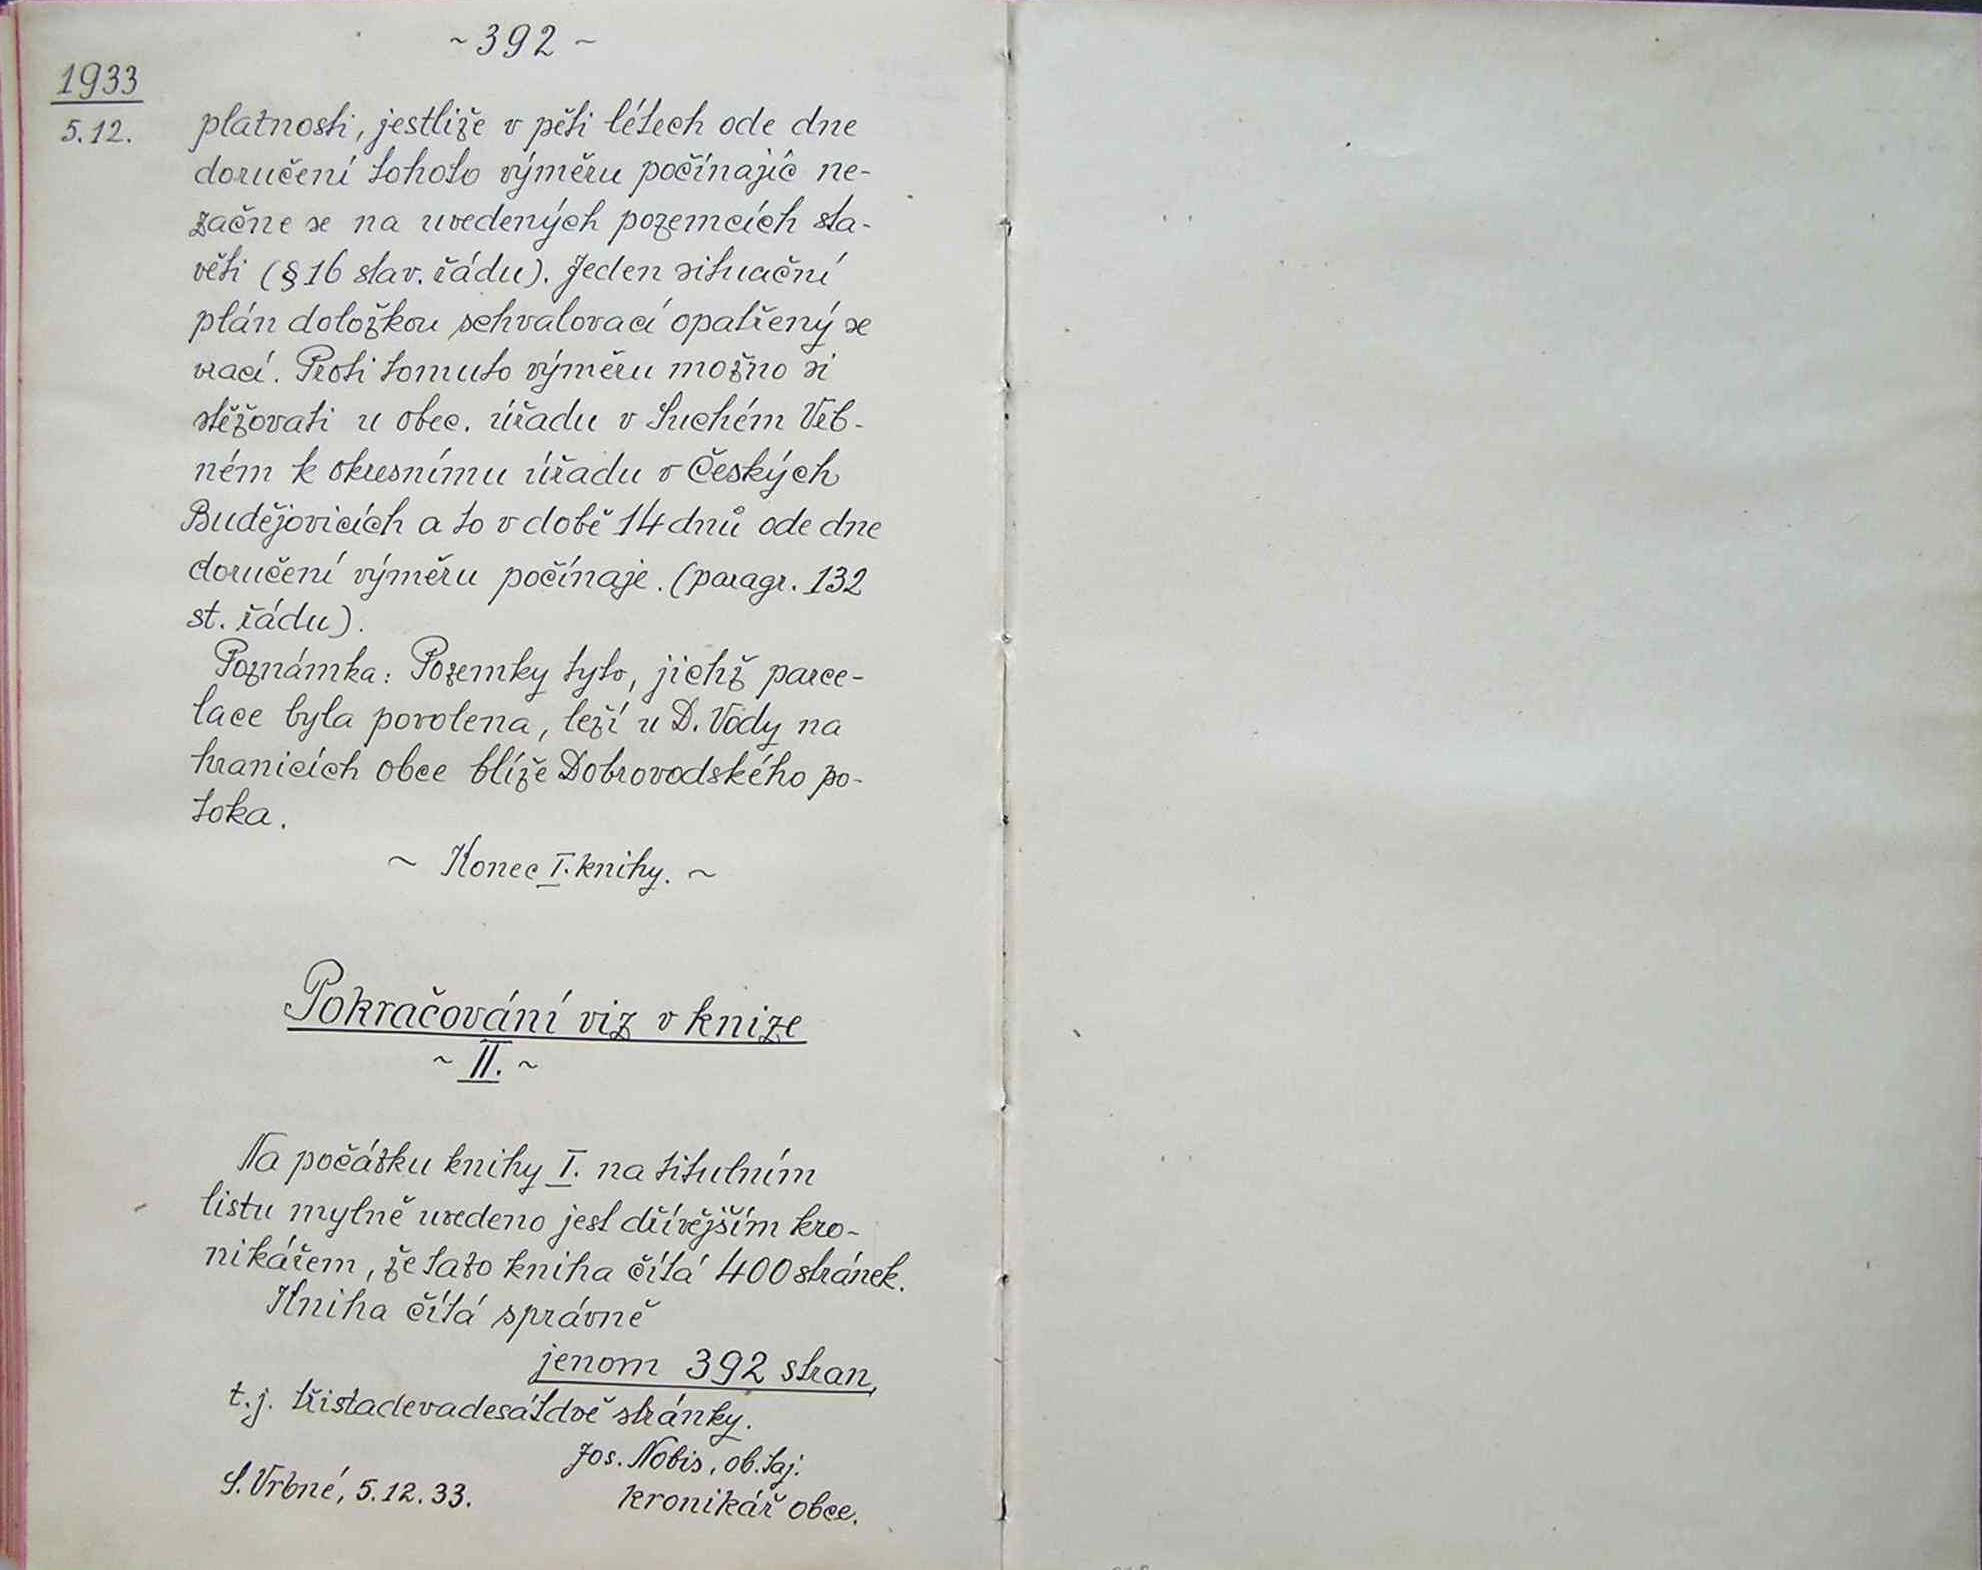 ~ 392 ~
1933
5.12.
platnosti, jestliže v pěti létech ode dne
doručení tohoto výměru počínajíc ne-
začne se na uvedených pozemcích sta-
věti (§ 16 stav. řádu). Jeden situační
plán doložkou schvalovací opatřený se
vrací. Proti tomuto výměru možno si
stěžovati u obec. úřadu v Suchém Vrb-
ném k okresnímu úřadu v Českých
Budějovicích a to v době 14 dnů ode dne
doručení výměru počínaje. (paragr. 132
st. řádu).
Poznámka: Pozemky tyto, jichž parce-
lace byla povolena, leží u D. Vody na
hranicích obce blíže Dobrovodského po-
toka.
~ Konec I. knihy. ~
Pokračování viz v knize
~ II. ~
Na počátku knihy I. na titulním
listu mylně uvedeno jest dřívějším kro-
nikářem, že tato kniha čítá 400 stránek.
Kniha čítá správně
jenom 392 stran,
t.j. třistadevadesátdvě stránky.
Jos. Nobis, ob. taj.
S. Vrbné, 5.12.33.
kronikář obce.